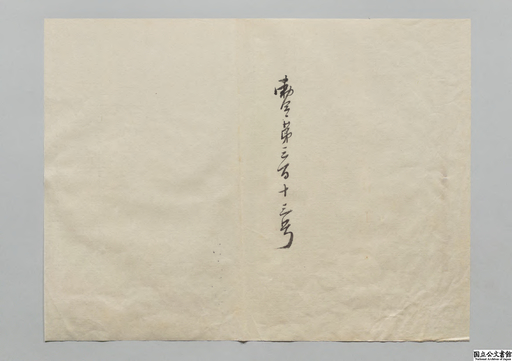 勅令第三百十三号
国立公文書館
National Archives of Japan